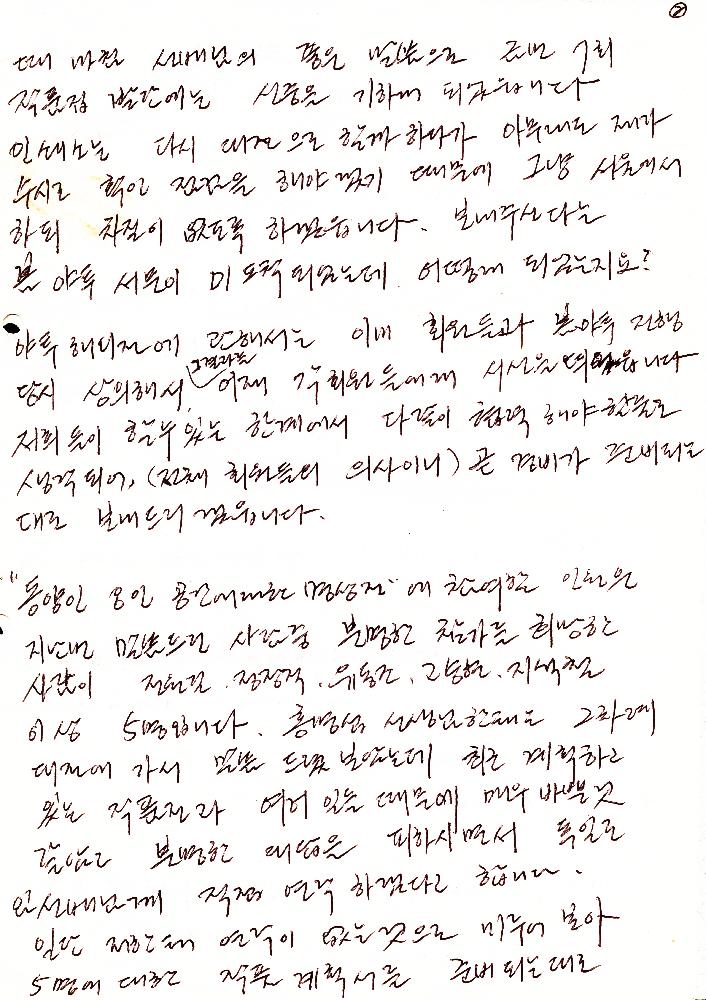 ②
때 마침 선배님의 좋은 말씀으로 금번 7회
작품집 발간에는 신중을 기하게 되었읍니다
인쇄소는 다시 대전으로 할까 하다가 아무래도 제가
수시로 확인 점검을 해야겠기 때문에 그냥 서울에서
하되 차질이 없도록 하겠읍니다. 보내주신다는
봄 야투 서문이 미 도착 되었는데 어떻게 되었는지요?
야투 해외전에 관해서는 이내 회원들과 봄야투 진행
당시 상의해서, 그결과를 어제 각회원들에게 서신을 띄웠읍니다
저희들이 할수 있는 한계에서 다같이 협력 해야 한줄로
생각되어, (전체 회원들의 의사이니) 곧 경비가 준비되는
대로 보내드리겠읍니다.
"동양인 8인 공간에대한 명상전" 에 참여할 인원은
지난번 말씀드린 사람중 분명한 참가를 희망한
사람이 전원길, 정장직, 유동조, 고승현, 지석철
이상 5명입니다. 홍명섭 선생님한테는 그차례
대전에 가서 말씀 드려 보았는데 최근 계획하고
있는 작품전과 여러 일들 때문에 매우 바쁠것
같았고 분명한 대답을 피하시면서 독일로
임선배님께 직접 연락 하겠다고 합니다.
일단 저한테 연락이 없는것으로 미루어 보아
5명에 대한 작품 계획서를 준비 되는대로